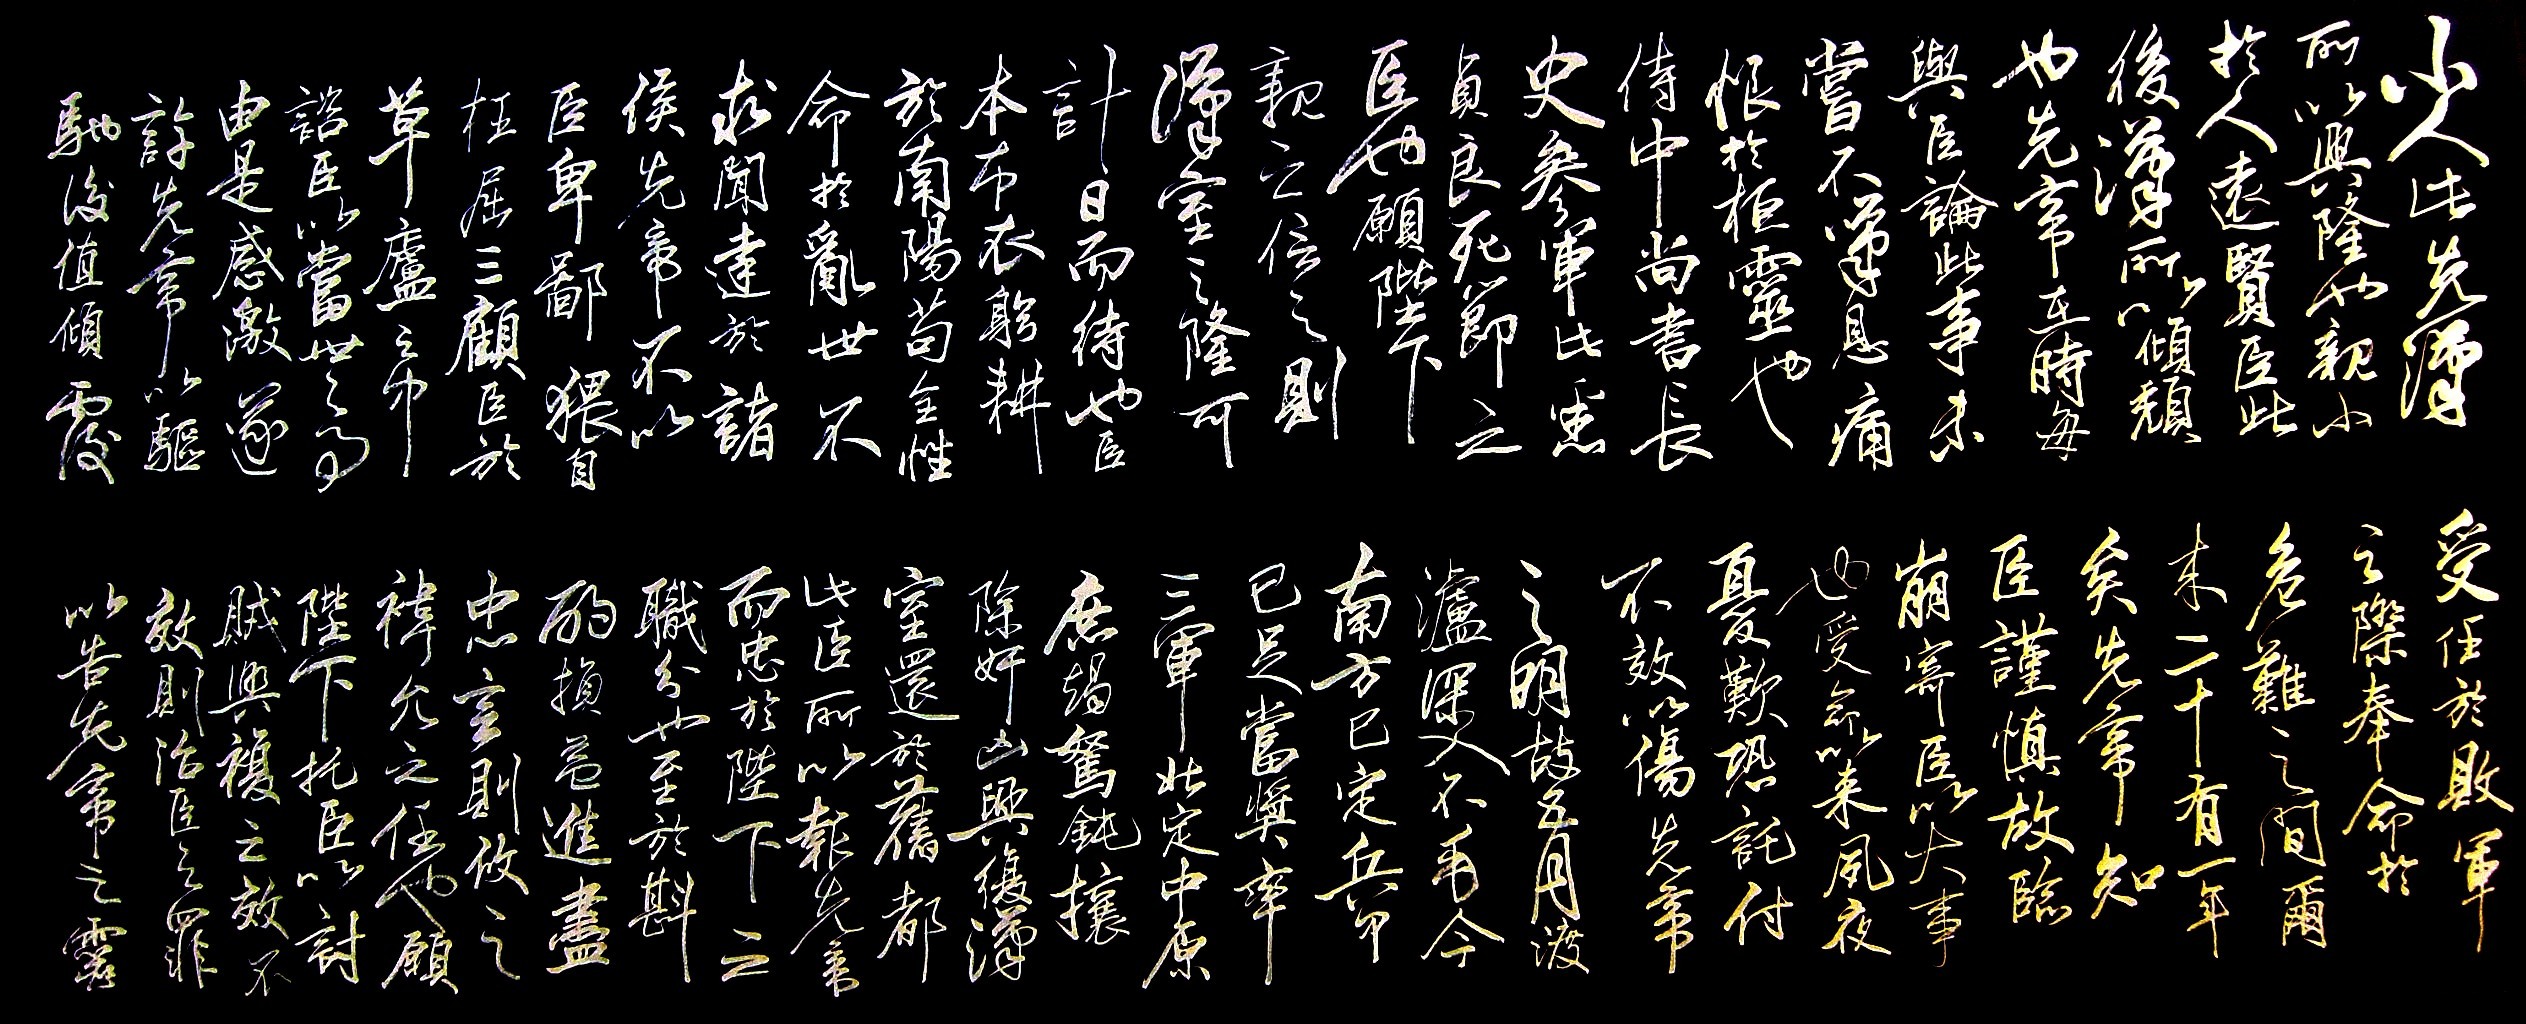 小人此先漢
所以興隆也親小
於人遠賢臣此
後漢所以傾頹
也先帝在時每
與臣論此事未
嘗不嘆息痛
恨於桓靈也
侍中尚書長
史參軍此悉
貞良死節之
臣也願陛下
親之信之則
漢室之隆可
計日而待也臣
本布衣躬耕
於南陽苟全性
命於亂世不
求聞達於諸
侯先帝不以
臣卑鄙猥自
枉屈三顧臣於
草廬之中
諮臣以當世之事
由是感激遂
許先帝以驅
馳後值傾覆
受任於敗軍
之際奉命於
危難之間爾
來二十有一年
矣先帝知
臣謹慎故臨
崩寄臣以大事
也受命以來夙夜
憂歎恐託付
不效以傷先帝
之明故五月渡
瀘深入不毛今
南方已定兵甲
已足當獎率
三軍北定中原
庶竭駑鈍攘
除奸凶興復漢
室還於舊都
此臣所以報先帝
而忠於陛下之
職分也至於斟
酌損益進盡
忠言則攸之
禕允之任也願
陛下托臣以討
賊興複之效不
效則治臣之罪
以告先帝之靈